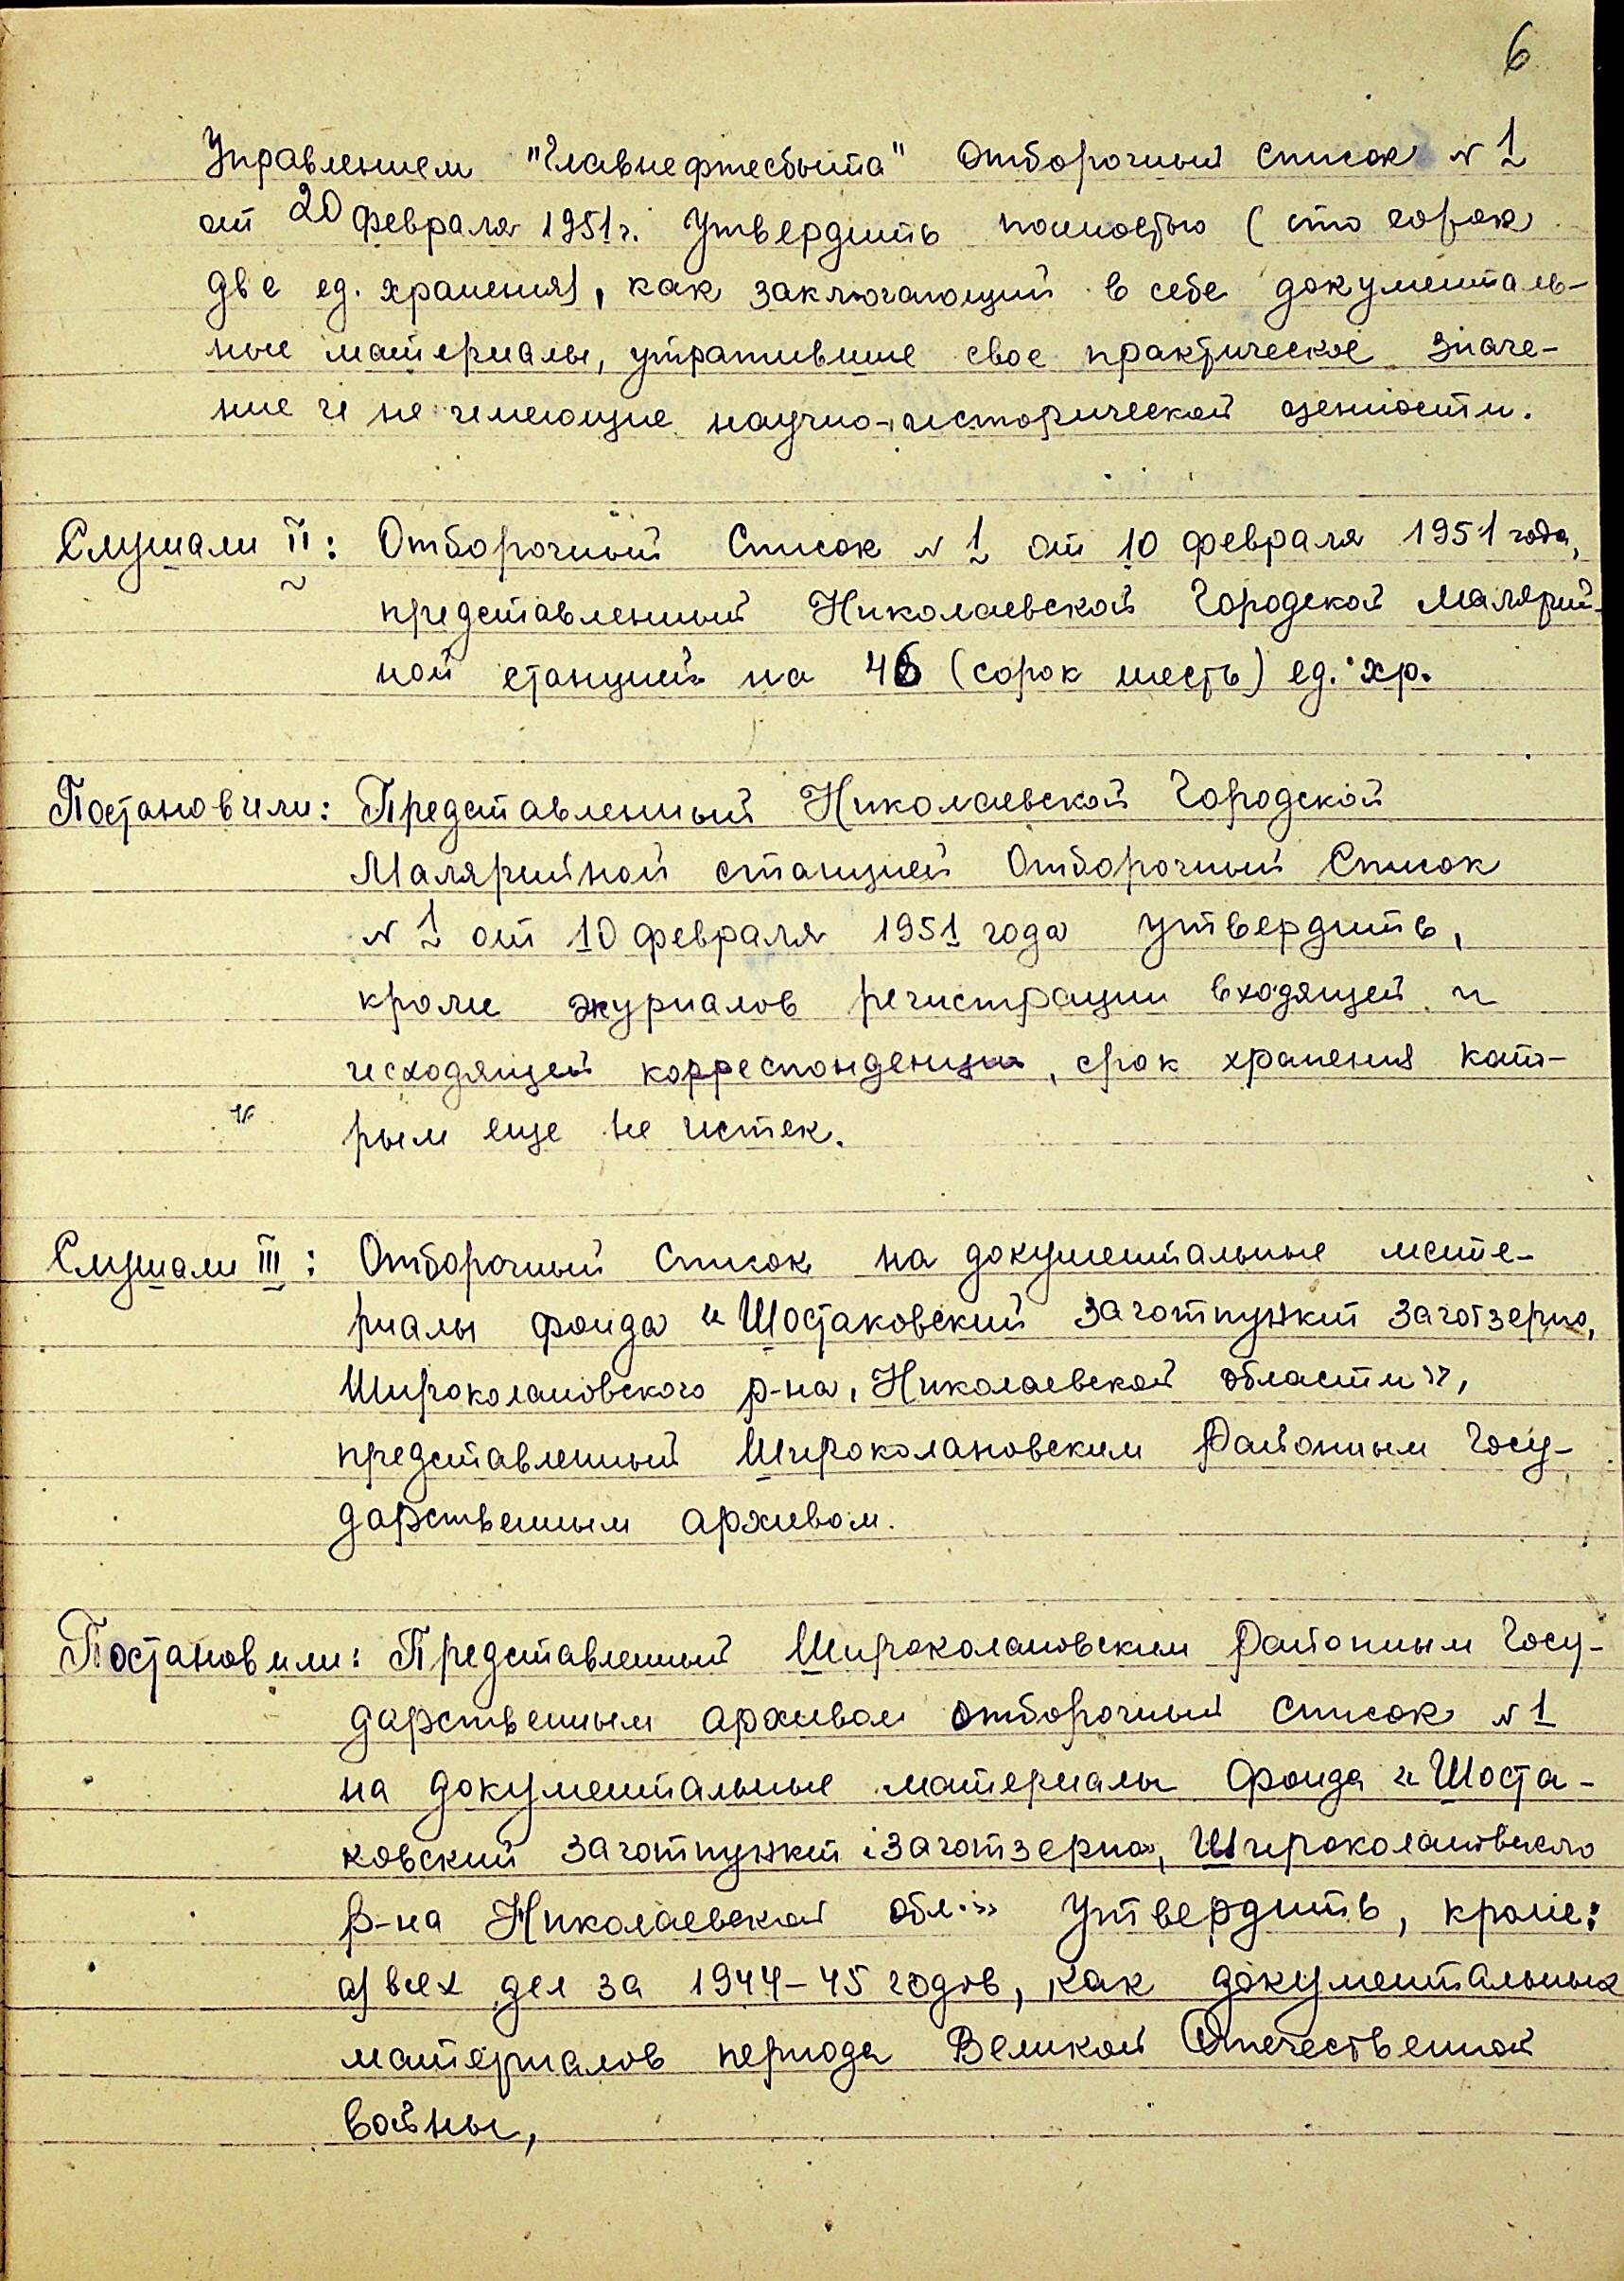 6
Управлением "Главнефтесбыта" Отборочный список № 1
от 20 февраля 1951 г. Утвердить полностью (сто сорок
две ед. хранения), как заключающий в себе документаль-
ные материалы, утратившие свое практическое значе-
ние и не имеющие научно-исторической ценности.
Слушали II: Отборочный Список № 1 от 10 февраля 1951 года,
представленный Николаевской Городской Малярий-
ной станцией на 46 (сорок шесть) ед. хр.
Постановили: Представленный Николаевской Городской
Малярийной станцией Отборочный Список
№ 1 от 10 февраля 1951 года утвердить,
кроме журналов регистрации входящей и
исходящей корреспонденции, срок хранения кото-
рым еще не истек.
Слушали III: Отборочный Список на документальные мате-
риалы фонда «Шостаковский Заготпункт Заготзерно,
Широколановского р-на, Николаевской области»,
представленный Широколановским Районным Госу-
дарственным архивом.
Постановили: Представленный Широколановским Районным Госу-
дарственным архивом отборочный список № 1
на документальные материалы Фонда «Шоста-
ковский Заготпункт «Заготзерно», Широколановского
р-на Николаевской обл.» Утвердить, кроме:
а) всех дел за 1944-45 годов, как документальных
материалов периода Великой Отечественной
войны,